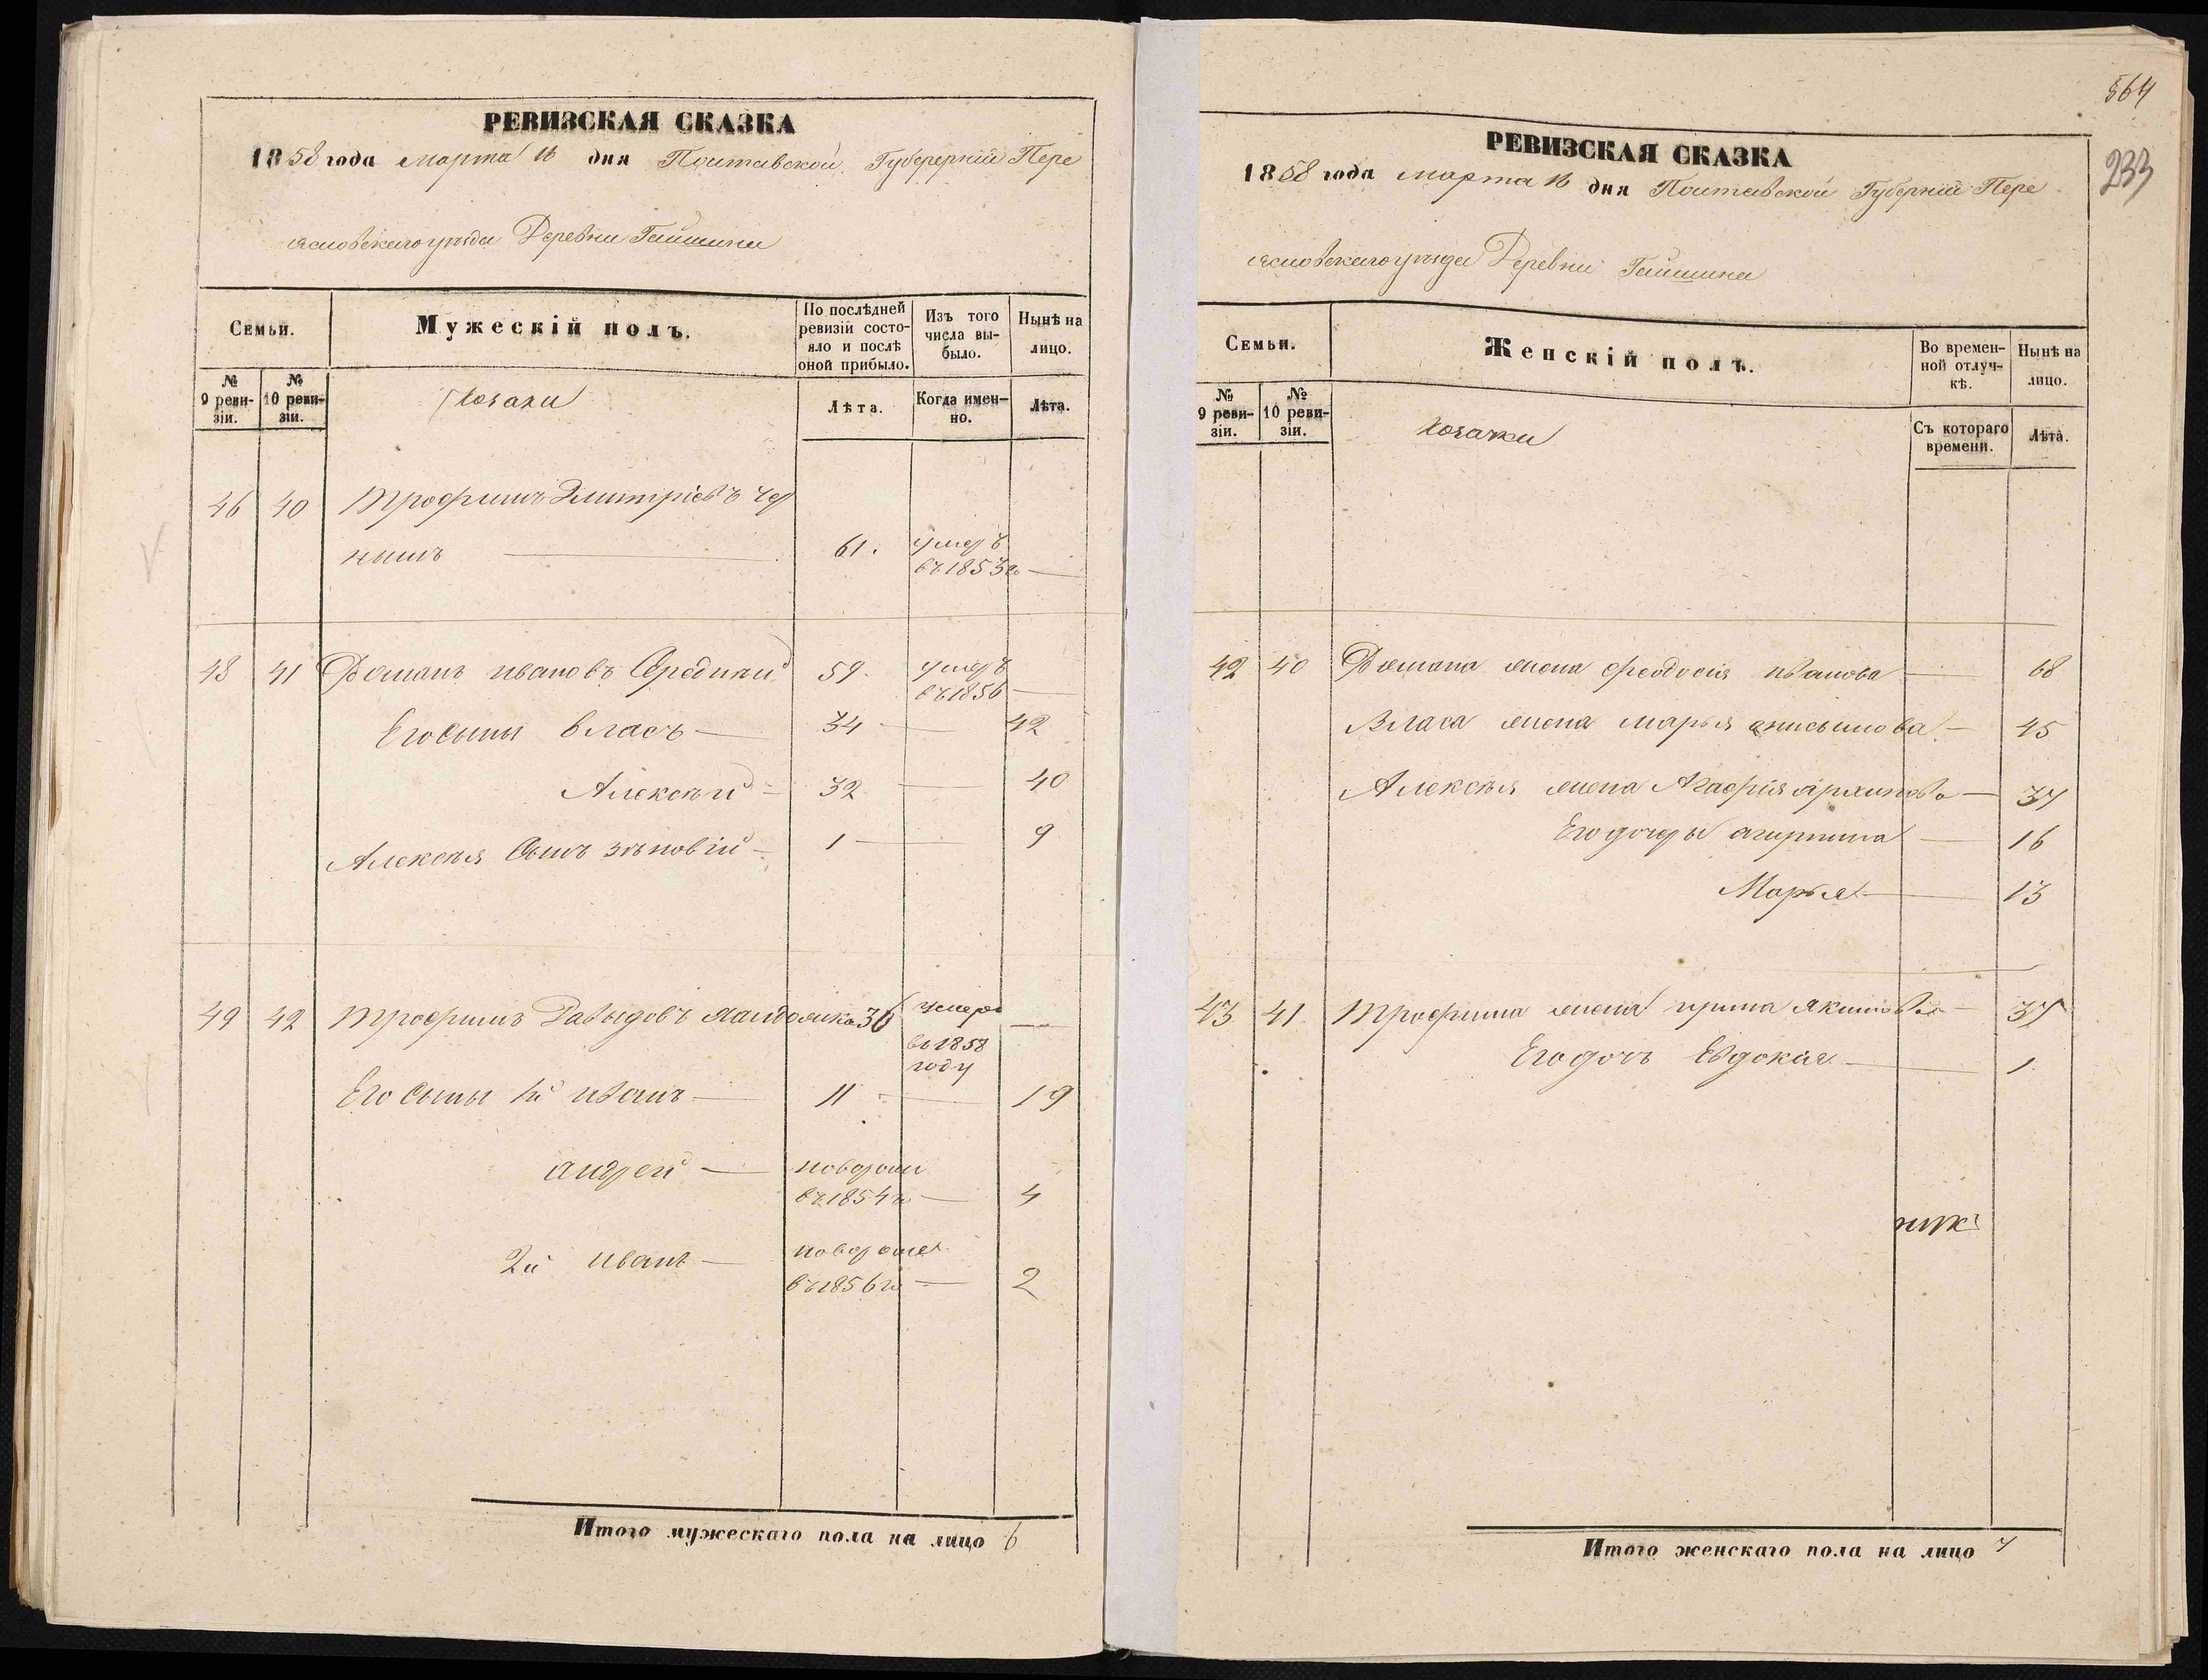 РЕВИЗСКАЯ СКАЗКА
1858 года марта 16 дня Полтавской Губерерніи Пере
яславскаго уѣзда Деревни Гайшина
Семьи.
Мужескій полъ.
По послѣдней ревизіи состояло и послѣ оной прибыло.
Изъ того числа выбыло.
Нынѣ на лицо.
№ 9 ревизіи.
№ 10 ревизіи.
Козаки
Лѣта.
Когда именно.
Лѣта.
46 40 Трофимъ Дмитріевъ Чер
нышъ — 61. умеръ
въ 1853 го —
48 41 Романъ ивановъ Середний 59. умеръ
въ 1856 —
Его сыны власъ — 34 — 42
Алексѣй — 32 — 40
Алексѣя Сынъ зѣновій — 1 — 9
49 42 трофимъ Давыдовъ 36 умеръ —
во 1858
году
Его сыны 1й иванъ — 11 — 19
андрей — новорож
въ 1854 го — 4
2й иванъ — новорож
въ 1856 го — 2
Итого мужескаго пола на лицо 6
564
233
РЕВИЗСКАЯ СКАЗКА
1858 года марта 16 дня Полтавской Губерніи Пере
яславскаго уѣзда Деревни Гайшина
Семьи.
Женскій полъ.
Во временной отлучкѣ.
Нынѣ на лицо.
№ 9 ревизіи.
№ 10 ревизіи.
Козачки
Съ котораго времени.
Лѣта.
42 40 Романа жена феодосія иванова — 68
Власа жена марья анисимова — 45
Алексѣя жена Агафія архипова — 37
Его дочеры агрипина — 16
Марья — 13
43 41 трофима жена ирина якимова — 37
Его дочь Евдокия — 1
Итого женскаго пола на лицо 7